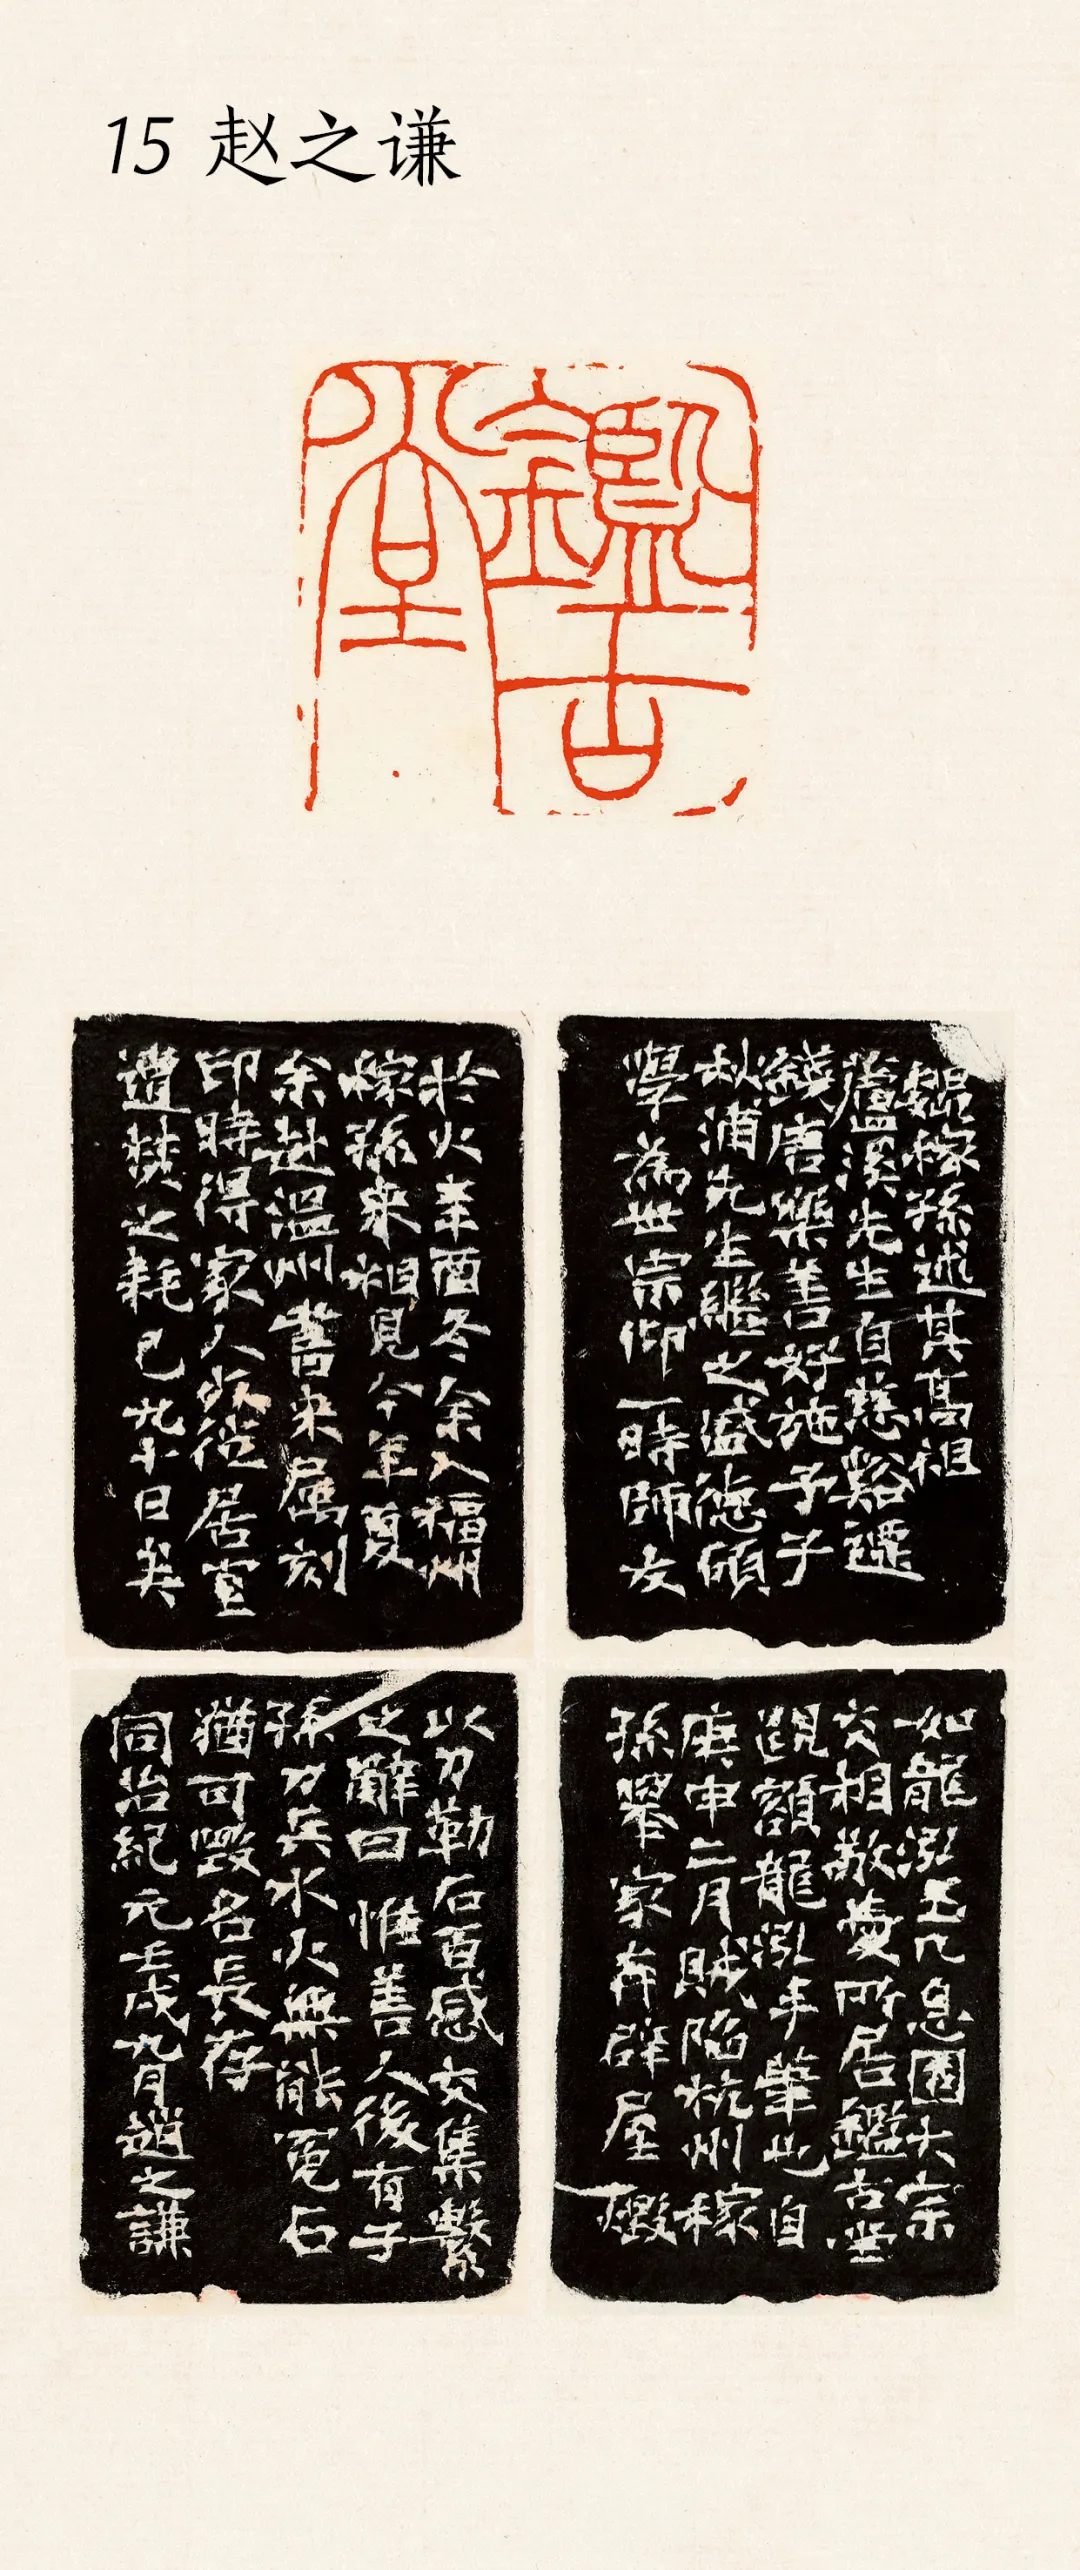 15 赵之谦
鑑古堂
魏稼孫述其高祖
蘆溪先生自慈谿遷
錢唐樂善好施予子
秋浦先生繼之盛德碩
學為世宗仰一時師友
如龍泓玉几息園大宗
交相敬愛所居鑑古堂
覞額龍泓手筆也自
庚申二月賊陷杭州稼
孫挈家奔辟屋燬
於火辛酉冬余入福州
稼孫來相見今年夏
余赴溫州書來屬刻
印時得家人從居室
遭焚之耗已九十日矣
以刀勒石百感交集繫
之辭曰 惟善人後有子
孫刀兵水火無能冤石
猶可毀名長存
同治紀元壬戌九月趙之謙